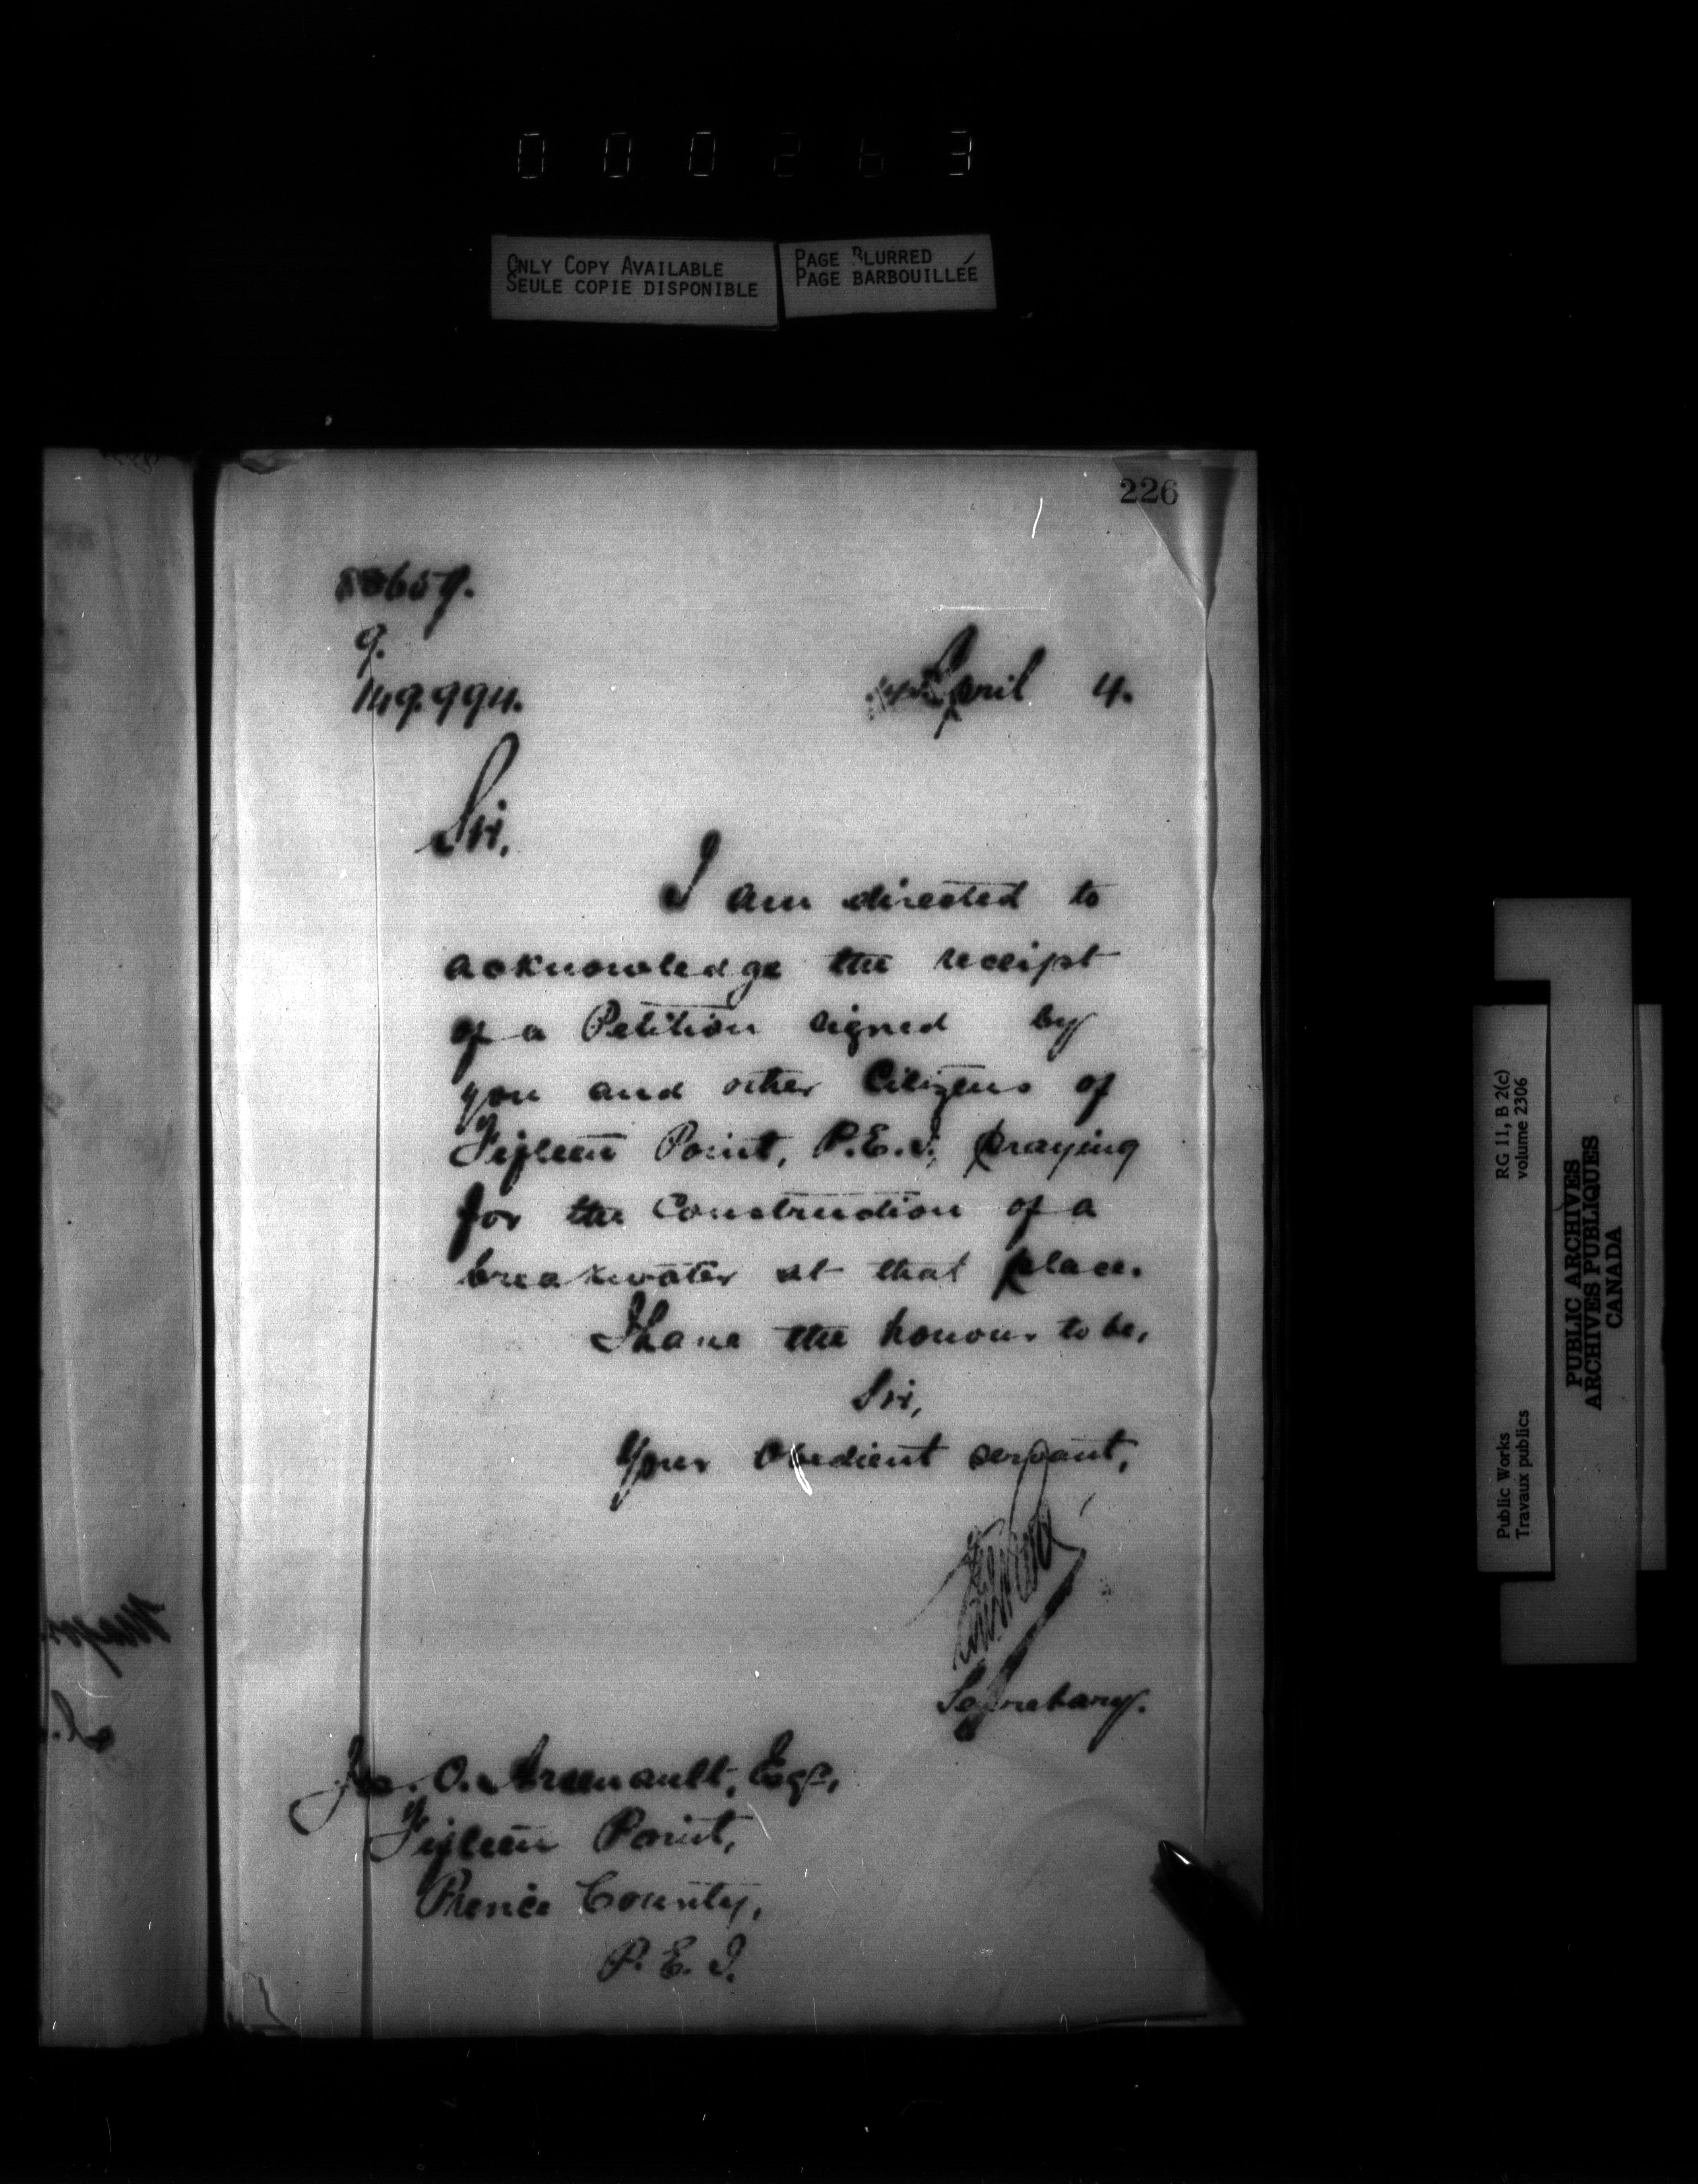 000263
ONLY COPY AVAILABLE
SEULE COPIE DISPONIBLE
PAGE BLURRED
PAGE BARBOUILLÉE
226
9.
149.994.
April 4.
Sir,
I am directed to
acknowledge the receipt
of a Petition signed by
you and other Citizens of
Fifteen Point, P.E.I., praying
for the Construction of a
breakwater at that place.
I have the honour to be,
Sir,
Your obedient servant,
Secretary.
Jos. O. Arsenault, Esq.,
Fifteen Point,
Prince County,
P. E. I.
Public Works
Travaux publics
RG 11, B 2(c)
volume 2306
PUBLIC ARCHIVES
ARCHIVES PUBLIQUES
CANADA